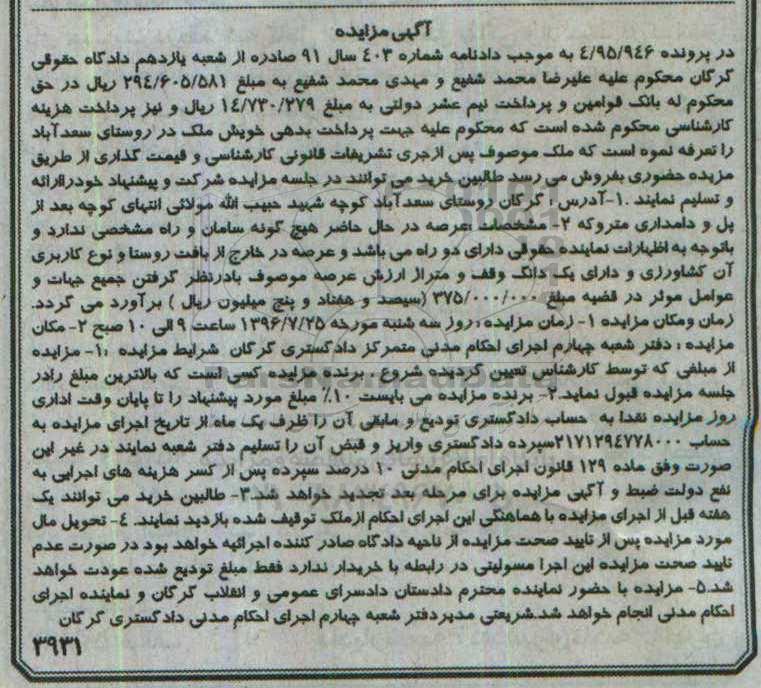 آگهی مزایده
در پرونده ۴/۹۵/۹۴۶ به موجب دادنامه شماره ۴۰۳ سال ۹۱ صادره از شعبه یازدهم دادگاه حقوقی
گرگان محکوم علیه علیرضا محمد شفیع و مهدی محمد شفیع به مبلغ ۲۹۴/۶۰۵/۵۸۱ ریال در حق
محکوم له بانک قوامین و پرداخت نیم عشر دولتی به مبلغ ۱۴/۷۳۰/۲۷۹ ریال و نیز پرداخت هزینه
کارشناسی محکوم شده است که محکوم علیه جهت پرداخت بدهی خویش ملک در روستای سعدآباد
را تعرفه نموه است که ملک موصوف پس ازجری تشریفات قانونی کارشناسی و قیمت گذاری از طریق
مزیده حضوری بفروش می رسد طالبین خرید می توانند در جلسه مزایده شرکت و پیشنهاد خودراارائه
و تسلیم نمایند .۱-آدرس : گرگان روستای سعدآباد کوچه شهید حبیب الله مولائی انتهای کوچه بعد از
پل و دامداری متروکه ۲- مشخصات :عرصه در حال حاضر هیچ گونه سامان و راه مشخصی ندارد و
باتوجه به اظهارات نماینده حقوقی دارای دو راه می باشد و عرصه در خارج از بافت روستا و نوع کاربری
آن کشاورزی و دارای یک دانگ وقف و متراژ ارزش عرصه موصوف بادرنظر گرفتن جمیع جهات و
عوامل موثر در قضیه مبلغ ۳۷۵/۰۰۰/۰۰۰ (سیصد و هفتاد و پنج میلیون ریال ) برآورد می گردد.
زمان ومکان مزایده ۱- زمان مزایده :روز سه شنبه مورخه ۱۳۹۶/۷/۲۵ ساعت ۹ الی ۱۰ صبح ۲- مکان
مزایده : دفتر شعبه چهارم اجرای احکام مدنی متمرکز دادگستری گرگان شرایط مزایده :۱- مزایده
از مبلغی که توسط کارشناس تعیین گردیده شروع . برنده مزایده کسی است که بالاترین مبلغ رادر
جلسه مزایده قبول نماید.۲- برنده مزایده می بایست ۱۰٪ مبلغ مورد پیشنهاد را تا پایان وقت اداری
روز مزایده نقدا به حساب دادگستری تودیع و مابقی آن را ظرف یک ماه از تاریخ اجرای مزایده به
حساب ۲۱۷۱۲۹۴۷۷۸۰۰۰سپرده دادگستری واریز و قبض آن را تسلیم دفتر شعبه نمایند در غیر این
صورت وفق ماده ۱۲۹ قانون اجرای احکام مدنی ۱۰ درصد سپرده پس از کسر هزینه های اجرایی به
نفع دولت ضبط و آگهی مزایده برای مرحله بعد تجدید خواهد شد.۳- طالبین خرید می توانند یک
هفته قبل از اجرای مزایده با هماهنگی این اجرای احکام ازملک توقیف شده بازدید نمایند. ۴- تحویل مال
مورد مزایده پس از تایید صحت مزایده از ناحیه دادگاه صادر کننده اجرائیه خواهد بود در صورت عدم
تایید صحت مزایده این اجرا مسولیتی در رابطه با خریدار ندارد فقط مبلغ تودیع شده عودت خواهد
شد.۵- مزایده با حضور نماینده محترم دادستان دادسرای عمومی و انقلاب گرگان و نماینده اجرای
احکام مدنی انجام خواهد شد.شریعتی مدیردفتر شعبه چهارم اجرای احکام مدنی دادگستری گرگان
۳۹۳۱